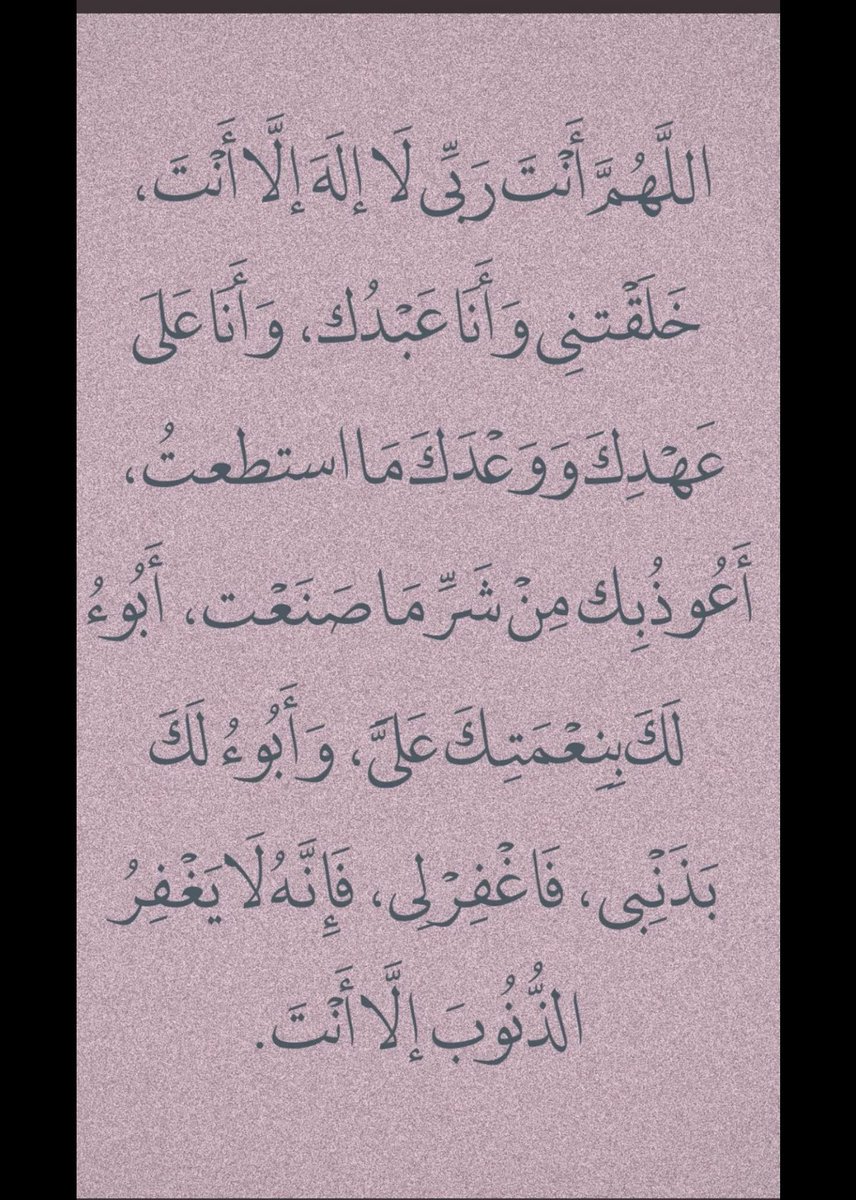 اللَّهُمَّ أَنْتَ رَبِّي لَا إِلَهَ إِلَّا أَنْتَ،
خَلَقْتنِي وَأَنَا عَبْدُك، وَأَنَا عَلَى
عَهْدِكَ وَوَعْدَكَ مَا استطعتُ،
أَعُوذُبِك مِنْ شَرِّ مَا صَنَعْت، أَبُوءُ
لَكَ بِنِعْمَتِكَ عَلَيَّ، وَأَبُوءُ لَكَ
بَذَنْبِي، فَاغْفِرْ لِي، فَإِنَّهُ لَا يَغْفِرُ
الذُّنُوبَ إِلَّا أَنْتَ.